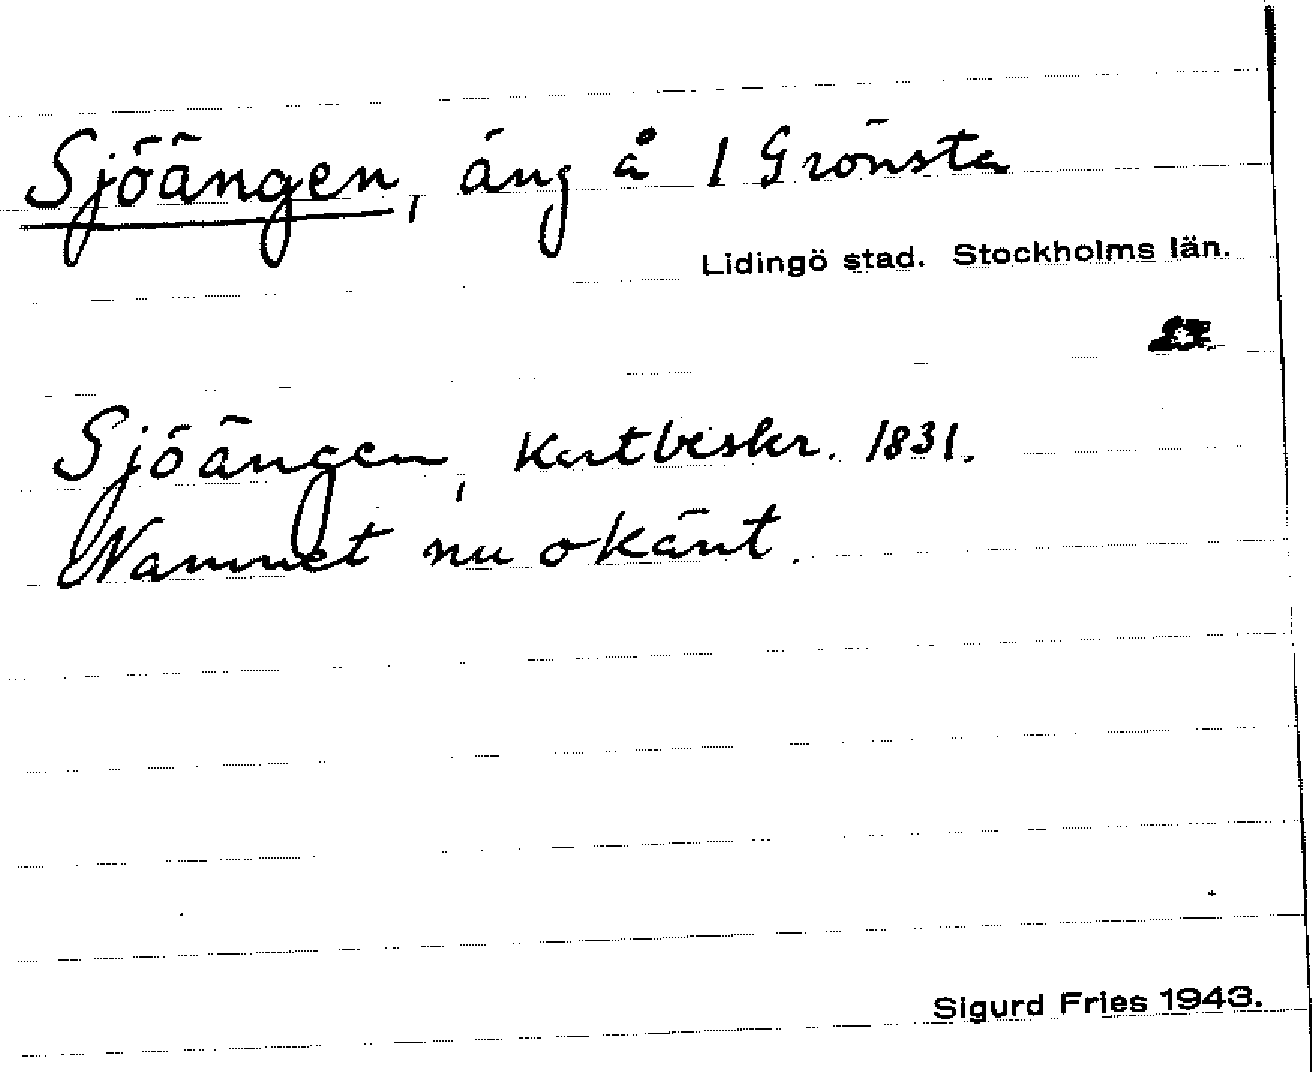 Sjöängen, äng å 1 Grönsta
Lidingö stad. Stockholms län.
Sjöängen, Kartbeskr. 1831.
Namnet nu okänt.
Sigurd Fries 1943.